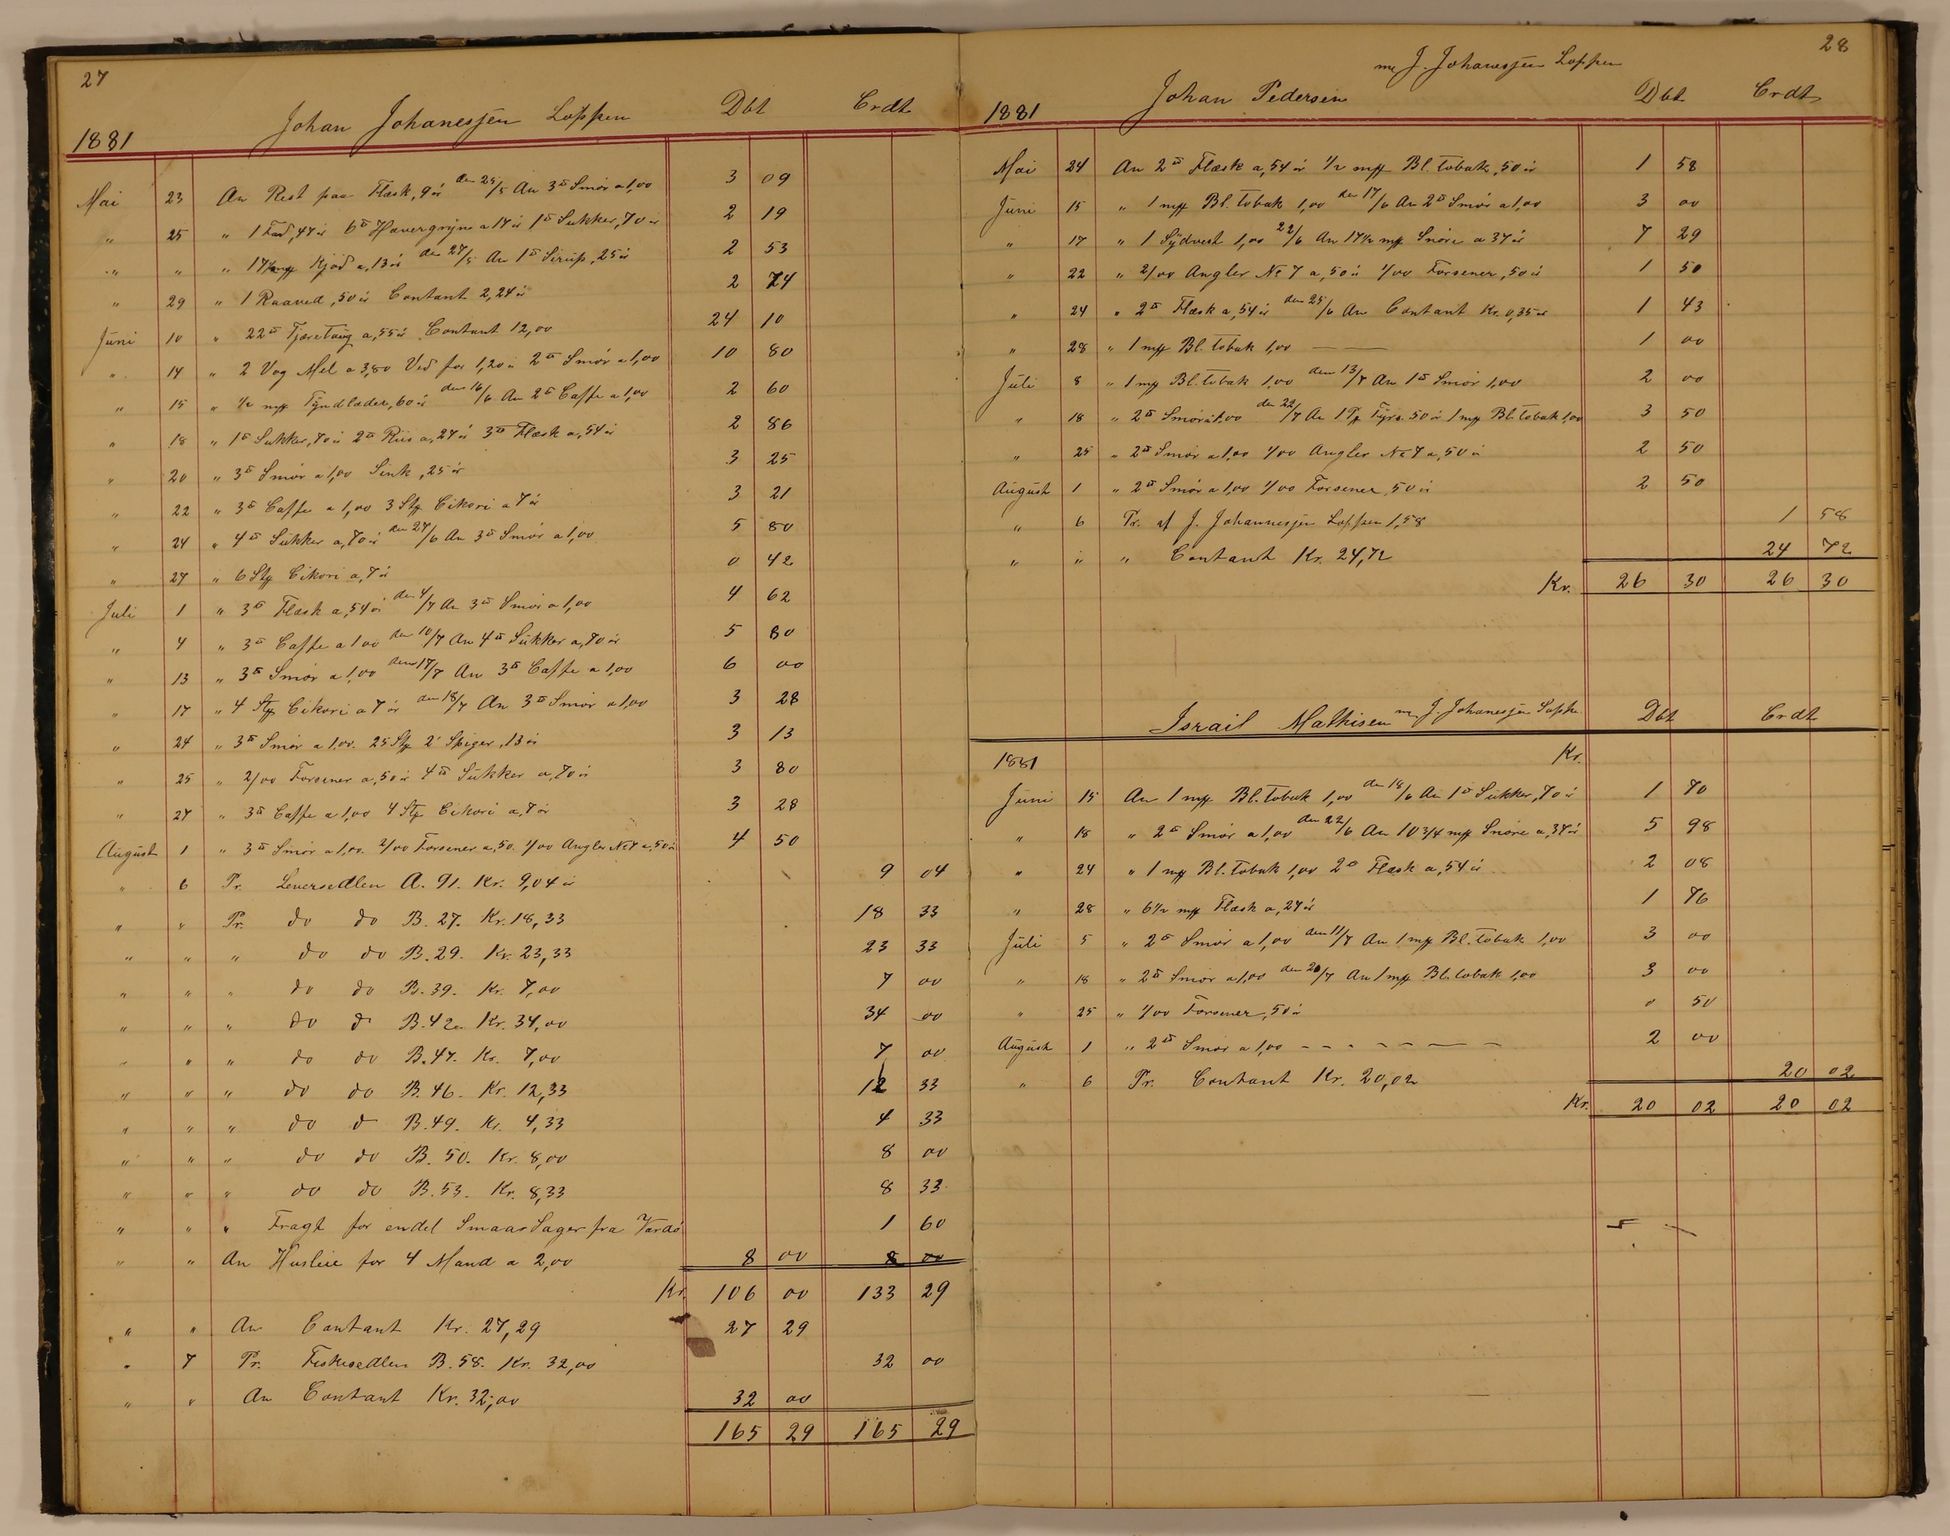 27
Johan Johanesjen Loppen Dbt Crdt
1881
Mai 23 An Rest paa Flæsk, 9 ör den 25/5 An 3 ℔ Smör a 1,00 3 09
" 25 " 1 Fad, 47 ör 6 ℔ Havergryn a 17 ör 1 ℔ Sukker, 70 ör 2 19
" " " Kjöd a, 13 ör den 27/5 An 1 ℔ Sirup, 25 ör 2 53
" 29 " 1 Raaved, 50 ör Contant 2,24 ör 2 74
Juni 10 " 22 ℔ Tjæretoug a, 55 ör Contant 12,00 24 10
" 14 " 2 Vog Mel a 3,80 Ved for 1,20 ör 2 ℔ Smör a 1,00 10 80
" 15 " 1/2 mrk Tyndlæder, 60 ör den 16/6 An 2 ℔ Caffe a 1,00 2 60
" 18 " 1 ℔ Sukker, 70 ör 2 ℔ Riis a, 27 ör 3 ℔ Flæsk a, 54 ör 2 86
" 20 " 3 ℔ Smör a 1,00 Sink, 25 ör 3 25
" 22 " 3 ℔ Caffe a 1,00 3 Stg Cikori a 7 ör 3 21
" 24 " 4 ℔ Sukker a, 70 ör den 27/6 An 3 ℔ Smör a 1,00 5 80
" 27 " 6 Stg Cikori a, 7 ör 0 42
Juli 1 " 3 ℔ Flæsk a, 54 ör den 4/7 An 3 ℔ Smör a 1,00 4 62
" 4 " 3 ℔ Caffe a 1 00 den 10/7 An 4 ℔ Sukker a, 70 ör 5 80
" 13 " 3 ℔ Smör a 1,00 den 17/7 An 3 ℔ Caffe a 1,00 6 00
" 17 " 4 Stg Cikori a 7 ör den 18/7 An 3 ℔ Smör a 1,00 3 28
" 24 " 3 ℔ Smör a 1,00. 25 Stg 2" Spiger, 13 ör 3 13
" 25 " 2/00 Forsener a, 50 ör 4 ℔ Sukker a, 70 ör 3 80
" 27 " 3 ℔ Caffe a 1,00 4 Stg Cikori a, 7 ör 3 28
August 1 " 3 ℔ Smör a 1,00. 2/00 Forsener a, 50. 1/00 Angler No 7 a, 50 ör 4 50
" 6 Pr. Leversedlen A. 91. Kr. 9,04 ör 9 04
" " Pr. do do B. 27. Kr. 18,33 18 33
" " " do do B. 29. Kr. 23,33 23 33
" " " do do B. 39. Kr. 7,00 7 00
" " " do do B. 42. Kr. 34,00 34 00
" " " do do B. 47. Kr. 7,00 7 00
" " " do do B. 46. Kr. 12,33 12 33
" " " do do B. 49. Kr. 4,33 4 33
" " " do do B. 50. Kr. 8,00 8 00
" " " do do B. 53. Kr. 8,33 8 33
" " " Fragt for endel Smaae Sager fra Vardö 1 60
" " An Husleie for 4 Mand a 2,00 8 00 8 00
Kr. 106 00 133 29
" " An Contant Kr. 27,29 27 29
" 7 Pr. Fiskesedlen B. 58. Kr. 32,00 32 00
" " An Contant Kr. 32,00 32 00
165 29 165 29
28
Johan Pedersen m J. Johanesjen Loppen Dbt Crdt
1881
Mai 24 An 2 ℔ Flæsk a, 54 ör 1/2 mrk Bl. tobak, 50 ör 1 58
Juni 15 " 1 mrk Bl. tobak 1,00 den 17/6 An 2 ℔ Smör a 1,00 3 00
" 17 " 1 Sydvest 1,00 22/6 An 17 1/2 mrk Snöre a 37 ör 7 29
" 22 " 2/00 Angler No 7 a, 50 ör 1/00 Forsener, 50 ör 1 50
" 24 " 2 ℔ Flæsk a, 54 ör den 25/6 An Contant Kr. 0,35 ör 1 43
" 28 " 1 mrk Bl. tobak 1,00 1 00
Juli 8 " 1 mrk Bl. tobak 1,00 den 13/7 An 1 ℔ Smör 1,00 2 00
" 18 " 2 ℔ Smör a 1,00 den 22/7 An 1 Fyrs. 50 ör 1 mrk Bl. tobak 1,00 3 50
" 25 " 2 ℔ Smör a 1,00 1/00 Angler No 7 a, 50 ör 2 50
August 1 " 2 ℔ Smör a 1,00 1/00 Forsener, 50 ör 2 50
" 6 Pr. af J. Johannesjen Loppen 1,58 1 58
" " " Contant Kr. 24,72 24 72
Kr. 26 30 26 30
Israil Mathisen m J. Johanesjen Loppe Dbt Crdt
1881 Kr.
Juni 15 An 1 mrk Bl. tobak 1,00 den 18/6 An 1 ℔ Sukker, 70 ör 1 70
" 18 " 2 ℔ Smör a 1,00 den 22/6 An 10 3/4 mrk Snöre a, 37 ör 5 98
" 24 " 1 mrk Bl. tobak 1,00 2 ℔ Flæsk a, 54 ör 2 08
" 28 " 6 1/2 mrk Flæsk a, 27 ör 1 76
Juli 5 " 2 ℔ Smör a 1,00 den 11/7 An 1 mrk Bl. tobak 1,00 3 00
" 18 " 2 ℔ Smör a 1,00 den 20/7 An 1 mrk Bl. tobak 1,00 3 00
" 25 " 1/00 Forsener, 50 ör 0 50
August 1 " 2 ℔ Smör a 1,00 2 00
" 6 Pr. Contant Kr. 20,02 20 02
Kr. 20 02 20 02